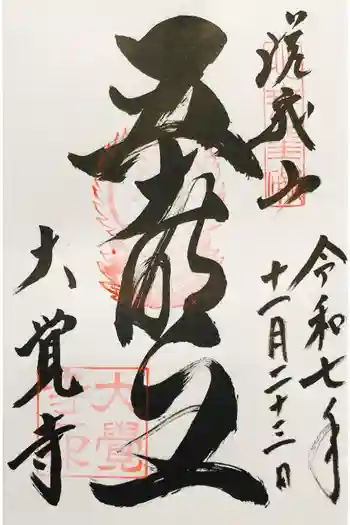 嵯峨山
令和七年
十一月二十三日
五大明王
大覚寺
大覺
寺印